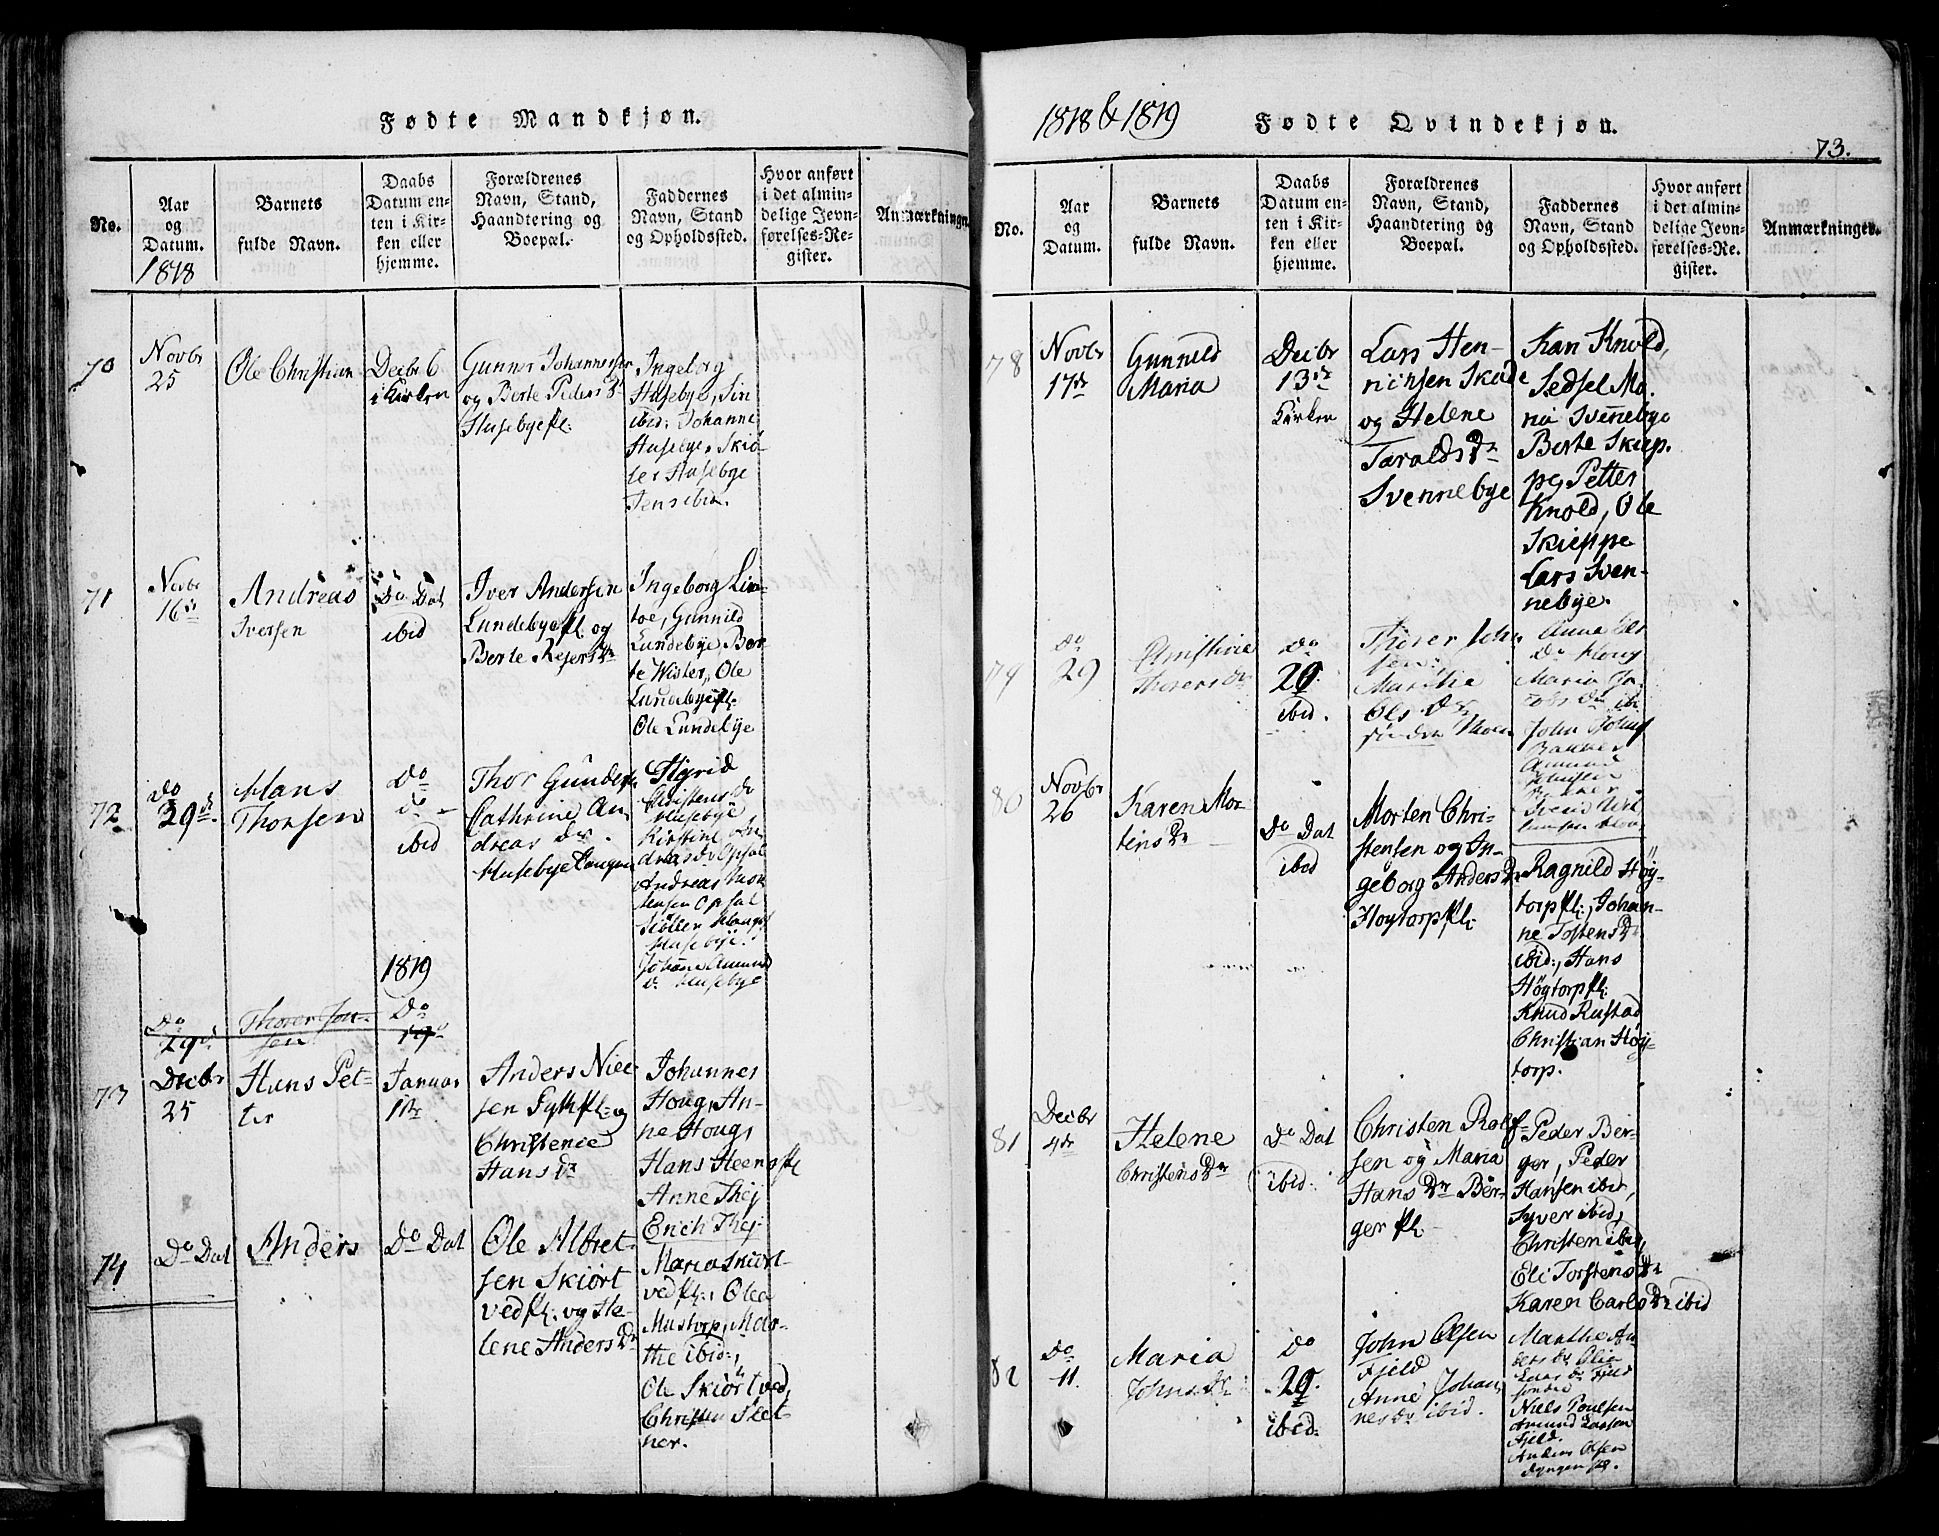 Fødte Mandkjøn.
No.
Aar
og
Datum.
1818
Barnets
fulde Navn.
Daabs
Datum en-
ten i Kir-
ken eller
hjemme.
Forældrenes
Navn, Stand,
Haandtering og
Boepæl.
Faddernes
Navn, Stand
og Opholdssted.
Hvor anført
i det almin-
delige Jevn-
førelses-Re-
gister.
Anmærkninge
70
Novbr
25
Ole Christian
Decbr 6
i Kirken
Gunner Johannesen
og Berte Peders Dr
Husebye fl:
Ingeborg
Husebye, Siri
ibid: Johanne
Husebye,
Husebye
Jens ibid.
71
Novbr
16de
Andreas
Iversen
Do Dat
ibid
Iver Andersen
Lundebye fl. og
Berte Rejers Dr
Ingeborg Lin-
toe, Gunnild
Lundebye, Ber-
te Wister, Ole
Lundebye fl.
Ole Lundebye
72
Do
29de
Hans
Thorsen
Do
do -
ibid
Thor Gunders
Cathrine An
dreas Dr
Husebye
Sigrid
Christens Dr
Husebye
Kirstine An
dreas Dr Opsal
Andreas
Opsal
Husebye.
Johanne Amund
Dr Husebye
1819
Do
29de
Thorer Jon-
sen
Do
19de
73
Decbr
25
Hans Pet-
ter
Januar
1ste
Anders Niel-
sen fl: og
Christenie
Hans Dr
Johannes
Houg, An-
ne Houg,
Hans Steens fl
Anne Thej
Erich Thej
74
Do Dat
Anders
Do Dat
Ole Albret-
sen Skiørt
ved fl: og He-
lene Anders Dr
Maria Skiørt
ved fl:, Olea
Mustorp, Mar-
the ibid:,
Ole Skiørtved,
Christen Slet
ner.
1818 & 1819
Fødte Qvindekjøn.
73.
No.
Aar
og
Datum.
Barnets
fulde Navn.
Daabs
Datum en-
ten i Kir-
ken eller
hjemme.
Forældrenes
Navn, Stand,
Haandtering og
Boepæl.
Faddernes
Navn, Stand
og Opholdssted.
Hvor anført
i det almin-
delige Jevn-
førelses-Re-
gister.
Anmærkninger.
78
Novbr
17de
Gunnild
Maria
Decbr
13de
Kirken
Lars Hen-
richsen Skade
og Helene
Taralds Dr
Svennebye
Kari Knold,
Sedsel Ma-
ria Svennebye
Berte Skiep-
pe, Petter
Knold, Ole
Skieppe
Lars Sven-
nebye.
79
do
29
Christine
Thorers Dr
Do
20
ibid.
Thorer John
sen
Marthe
Ols Dr
Anne
Dr Houg
Maria Ja-
cobs Dr ibi
John
Bakker
Amund
80
Novbr
26
Karen Mor-
tens Dr
Do Dat
ibid
Morten Chri-
stensen og In-
geborg Anders Dr
Høytorp fl:
Ragnild Høy-
torp fl:, Johan-
ne Tostens Dr
ibid:, Hans
Høytorp fl:
Knud Rustad
Christian Høy-
torp.
81
Decbr
4de
Helene
Christens Dr
Do Dat
ibid:
Christen Rolf-
sen og Maria
Hans Dr Ber-
ger fl:
Peder Ber-
ger, Peder
Hansen ibid,
Syver ibid,
Christen ibid,
Eli Torstens Dr
Karen Carls Dr ibid
82
Do
11
Maria
Johns Dr
Do
20
ibid:
John Olsen
Fjeld
Anne Johan
nes Dr ibid.
Marthe An
ders Dr
Lars Dr Fjeld
søndre
Niels Poulsen
Amund Larsen
Fjeld.
Anders Olsen